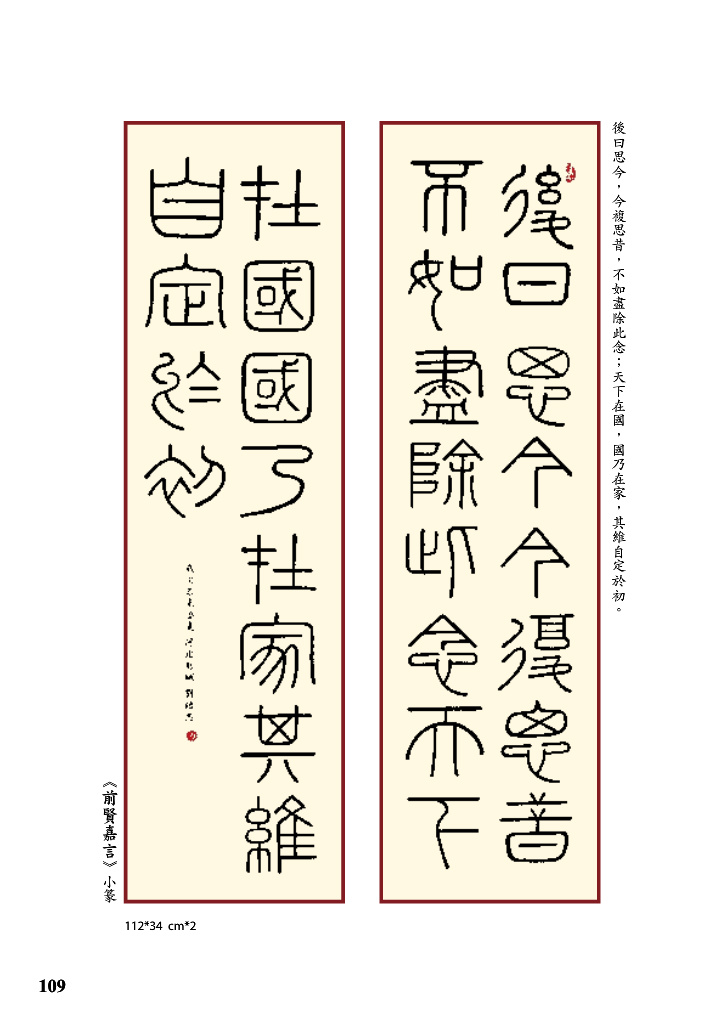 後曰思今，今複思昔，不如盡除此念；天下在國，國乃在家，其維自定於初。
後曰思今今復思昔
不如盡除此念天下
在國國乃在家其維
自定於初
《前賢嘉言》小篆
112*34 cm*2
109